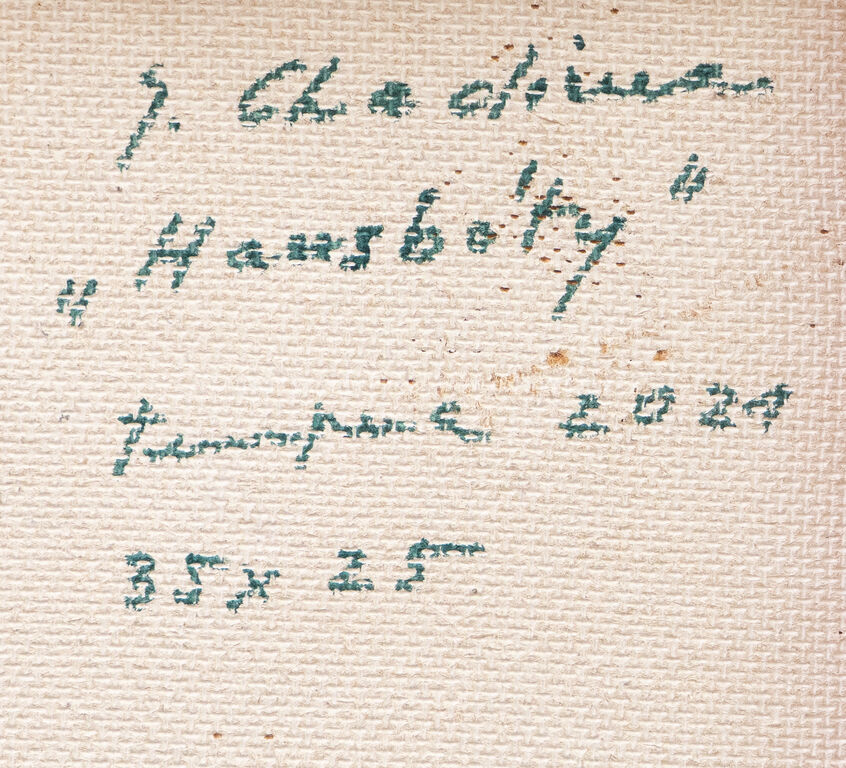 J. Chadima
"Hausbóty"
tempera 2024
35x 25